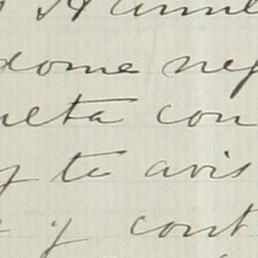 dome neg
elta con
y te avis
y cont